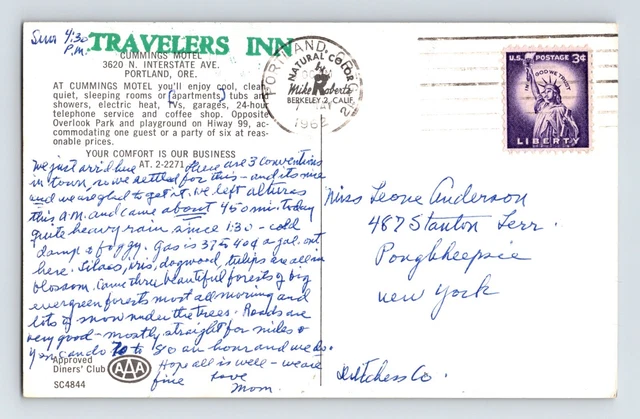 Sun 4:30
P.M.
TRAVELERS INN
CUMMINGS MOTEL
3620 N. INTERSTATE AVE.
PORTLAND, ORE.
AT CUMMINGS MOTEL you'll enjoy cool, clean,
quiet, sleeping rooms or (apartments) tubs and
showers, electric heat, tvs, garages, 24-hour
telephone service and coffee shop. Opposite
Overlook Park and playground on Hiway 99, ac-
commodating one guest or a party of six at reas-
onable prices.
YOUR COMFORT IS OUR BUSINESS
AT. 2-2271
We just arrived here there are 3 conventions
in town, so we settled for this - and its nice
and we are glad to get it. We left alturas
this A.M. and came about 450 mi. today
quite heavy rain since 1:30 - cold
damp & foggy. Gas is 37 & 40¢ a gal. out
here. Lilacs, iris, dogwood, tulips are all in
blossom. Came thru beautiful forests of big
evergreen forests most all morning and
lots of snow under the trees. Roads are
very good - mostly straight for miles &
you can do 70 to 80 an hour and we do.
Hope all is well - we are
fine Love
Mom.
Approved
Diners' Club
AAA
SC4844
PORTLAND, OREG.
1962
NATURAL COLOR
Mike Roberts
BERKELEY 2, CALIF.
U.S. POSTAGE 3¢
IN GOD WE TRUST
LIBERTY
Miss Leone Anderson
487 Stanton Terr.
Poughkeepsie
New York
Dutchess Co.